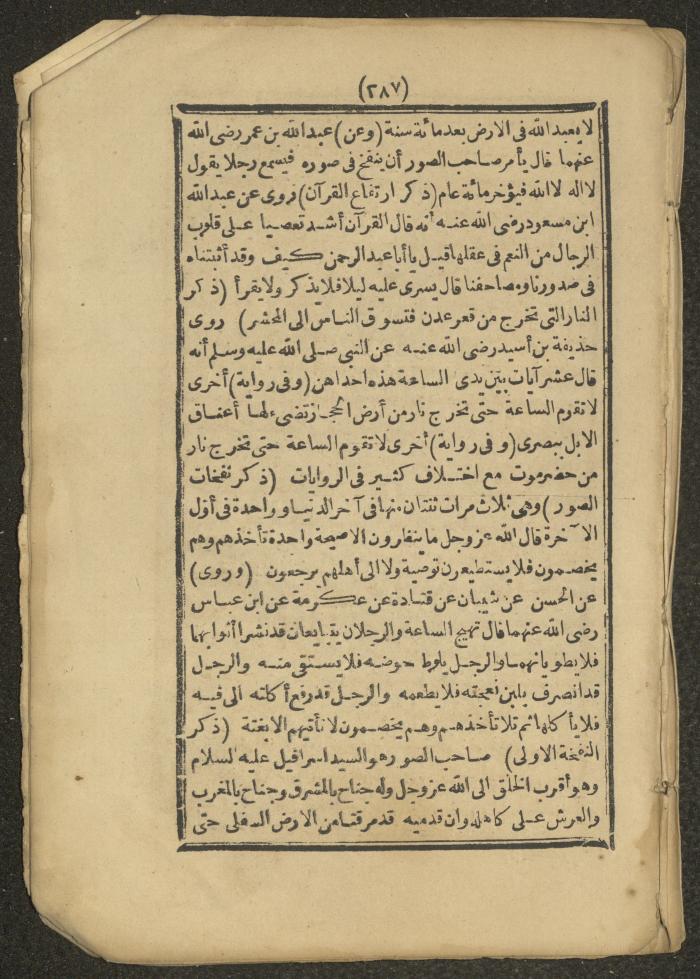 (٢٨٧)
لا يعبد الله فى الارض بعد مائة سنة (وعن) عبد الله بن عمر رضى الله
عنهما قال يأمر صاحب الصور أن ينفخ فى صوره فيسمع رجلا يقول
لا اله الا الله فيؤخر مائة عام (ذكر ارتفاع القرآن) روى عن عبد الله
ابن مسعود رضى الله عنه أنه قال القرآن أشد تعصيا على قلوب
الرجال من النعم فى عقلها قيل يا أبا عبد الرحمن كيف وقد أثبتناه
فى صدورنا ومصاحفنا قال يسرى عليه ليلا فلا يذكر ولا يقرأ (ذكر
النار التى تخرج من قعر عدن فتسوق الناس الى المحشر) روى
حذيفة بن أسيد رضى الله عنه عن النبى صلى الله عليه وسلم أنه
قال عشر آيات بين يدى الساعة هذه احداهن (وفى رواية) أخرى
لا تقوم الساعة حتى تخرج نار من أرض الحجاز تضىء لها أعناق
الابل ببصرى (وفى رواية) أخرى لا تقوم الساعة حتى تخرج نار
من حضرموت مع اختلاف كثير فى الروايات (ذكر نفخات
الصور) وهى ثلاث مرات ثنتان منها فى آخر الدنيا وواحدة فى أول
الآخرة قال الله عز وجل ما ينظرون الا صيحة واحدة تأخذهم وهم
يخصمون فلا يستطيعون توصية ولا الى أهلهم يرجعون (وروى)
عن الحسن عن شيبان عن قتادة عن عكرمة عن ابن عباس
رضى الله عنهما قال تهيج الساعة والرجلان يتبايعان قد نشرا أثوابهما
فلا يطويانهما والرجل يلوط حوضه فلا يستقى منه والرجل
قد انصرف بلبن نعجته فلا يطعمه والرجل قد رفع أكلته الى فيه
فلا يأكلها ثم تلا تأخذهم وهم يخصمون لا تأتيهم الا بغتة (ذكر
النفخة الاولى) صاحب الصور هو السيد اسرافيل عليه السلام
وهو أقرب الخلق الى الله عز وجل وله جناح بالمشرق وجناح بالمغرب
والعرش على كاهله وان قدميه قد مرقتا من الارض السفلى حتى